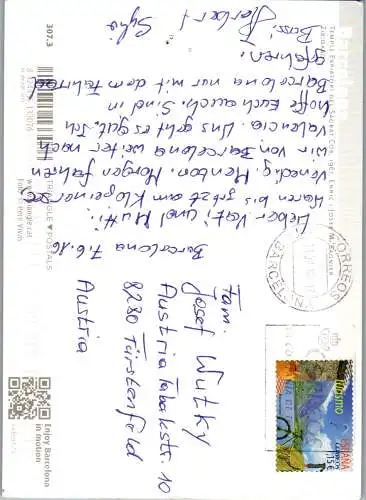 Barcelona 7.6.16
Lieber Vati und Mutti!
Waren bis jetzt am Klopeinersee,
Venedig, Menton. Morgen fahren
wir von Barcelona weiter nach
Valencia. Uns geht es gut. Ich
hoffe Euch auch. Sind in
Barcelona nur mit dem Fahrrad
gefahren.
Bussi Herbert
Sylvia
Fam.
Josef Wutky
Austria Tabakstr. 10
8280 Fürstenfeld
Austria
307.3
TRIANGLE ▼ POSTALS
Enjoy Barcelona
in motion
CORREOS
BARCELONA
turismo
ESPAÑA
CORREOS